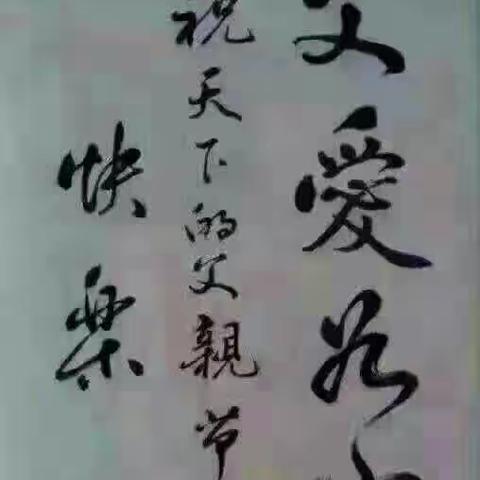 父愛如
祝天下的父親节
快樂